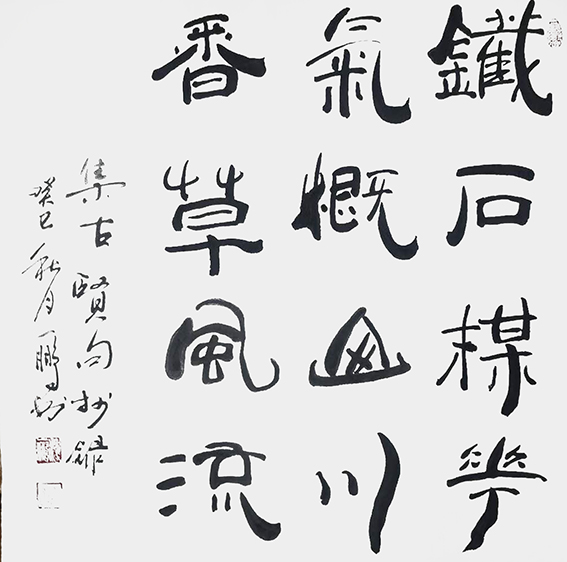 鐵石楳華
氣概山川
香草風流
集古賢句抄録
癸巳秋月一鵬